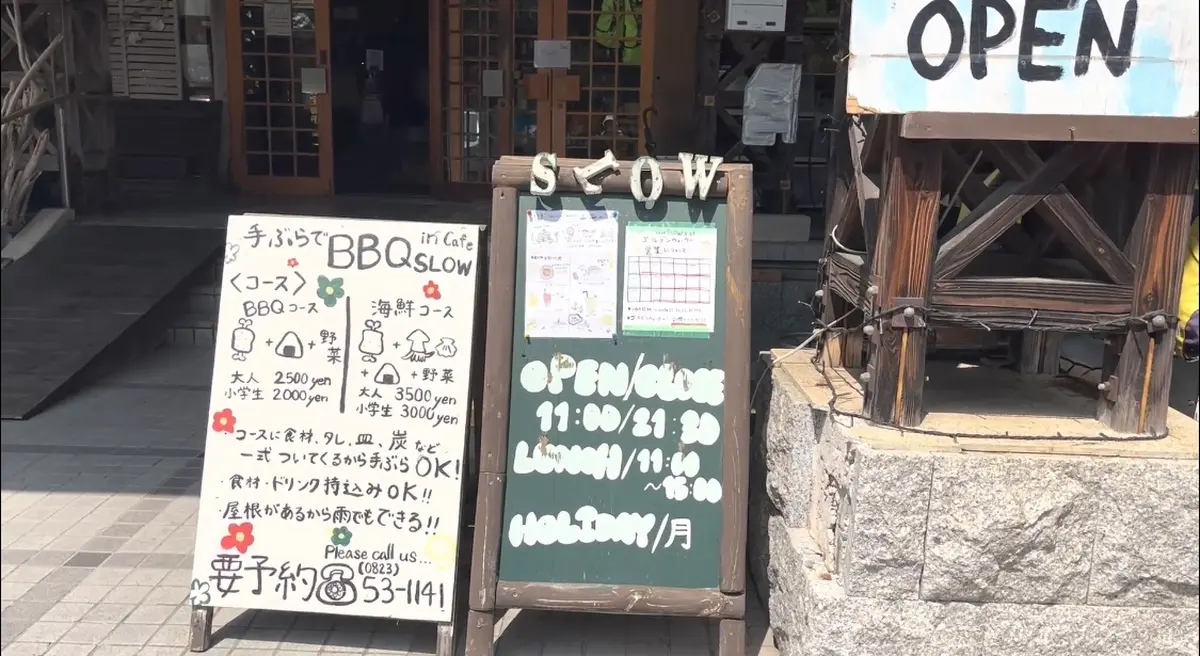 OPEN
SLOW
手ぶらでBBQ in Cafe SLOW
〈コース〉
BBQコース
+ + 野菜
大人 2500yen
小学生 2000yen
海鮮コース
+
+ + 野菜
大人 3500yen
小学生 3000yen
・コースに食材、タレ、皿、炭など
一式ついてくるから手ぶらOK!
・食材・ドリンク持込みOK!!
・屋根があるから雨でもできる!!
Please call us...
要予約 (0823) 53-1141
OPEN/CLOSE
11:00/21:30
LUNCH/11:00
～15:00
HOLIDAY/月